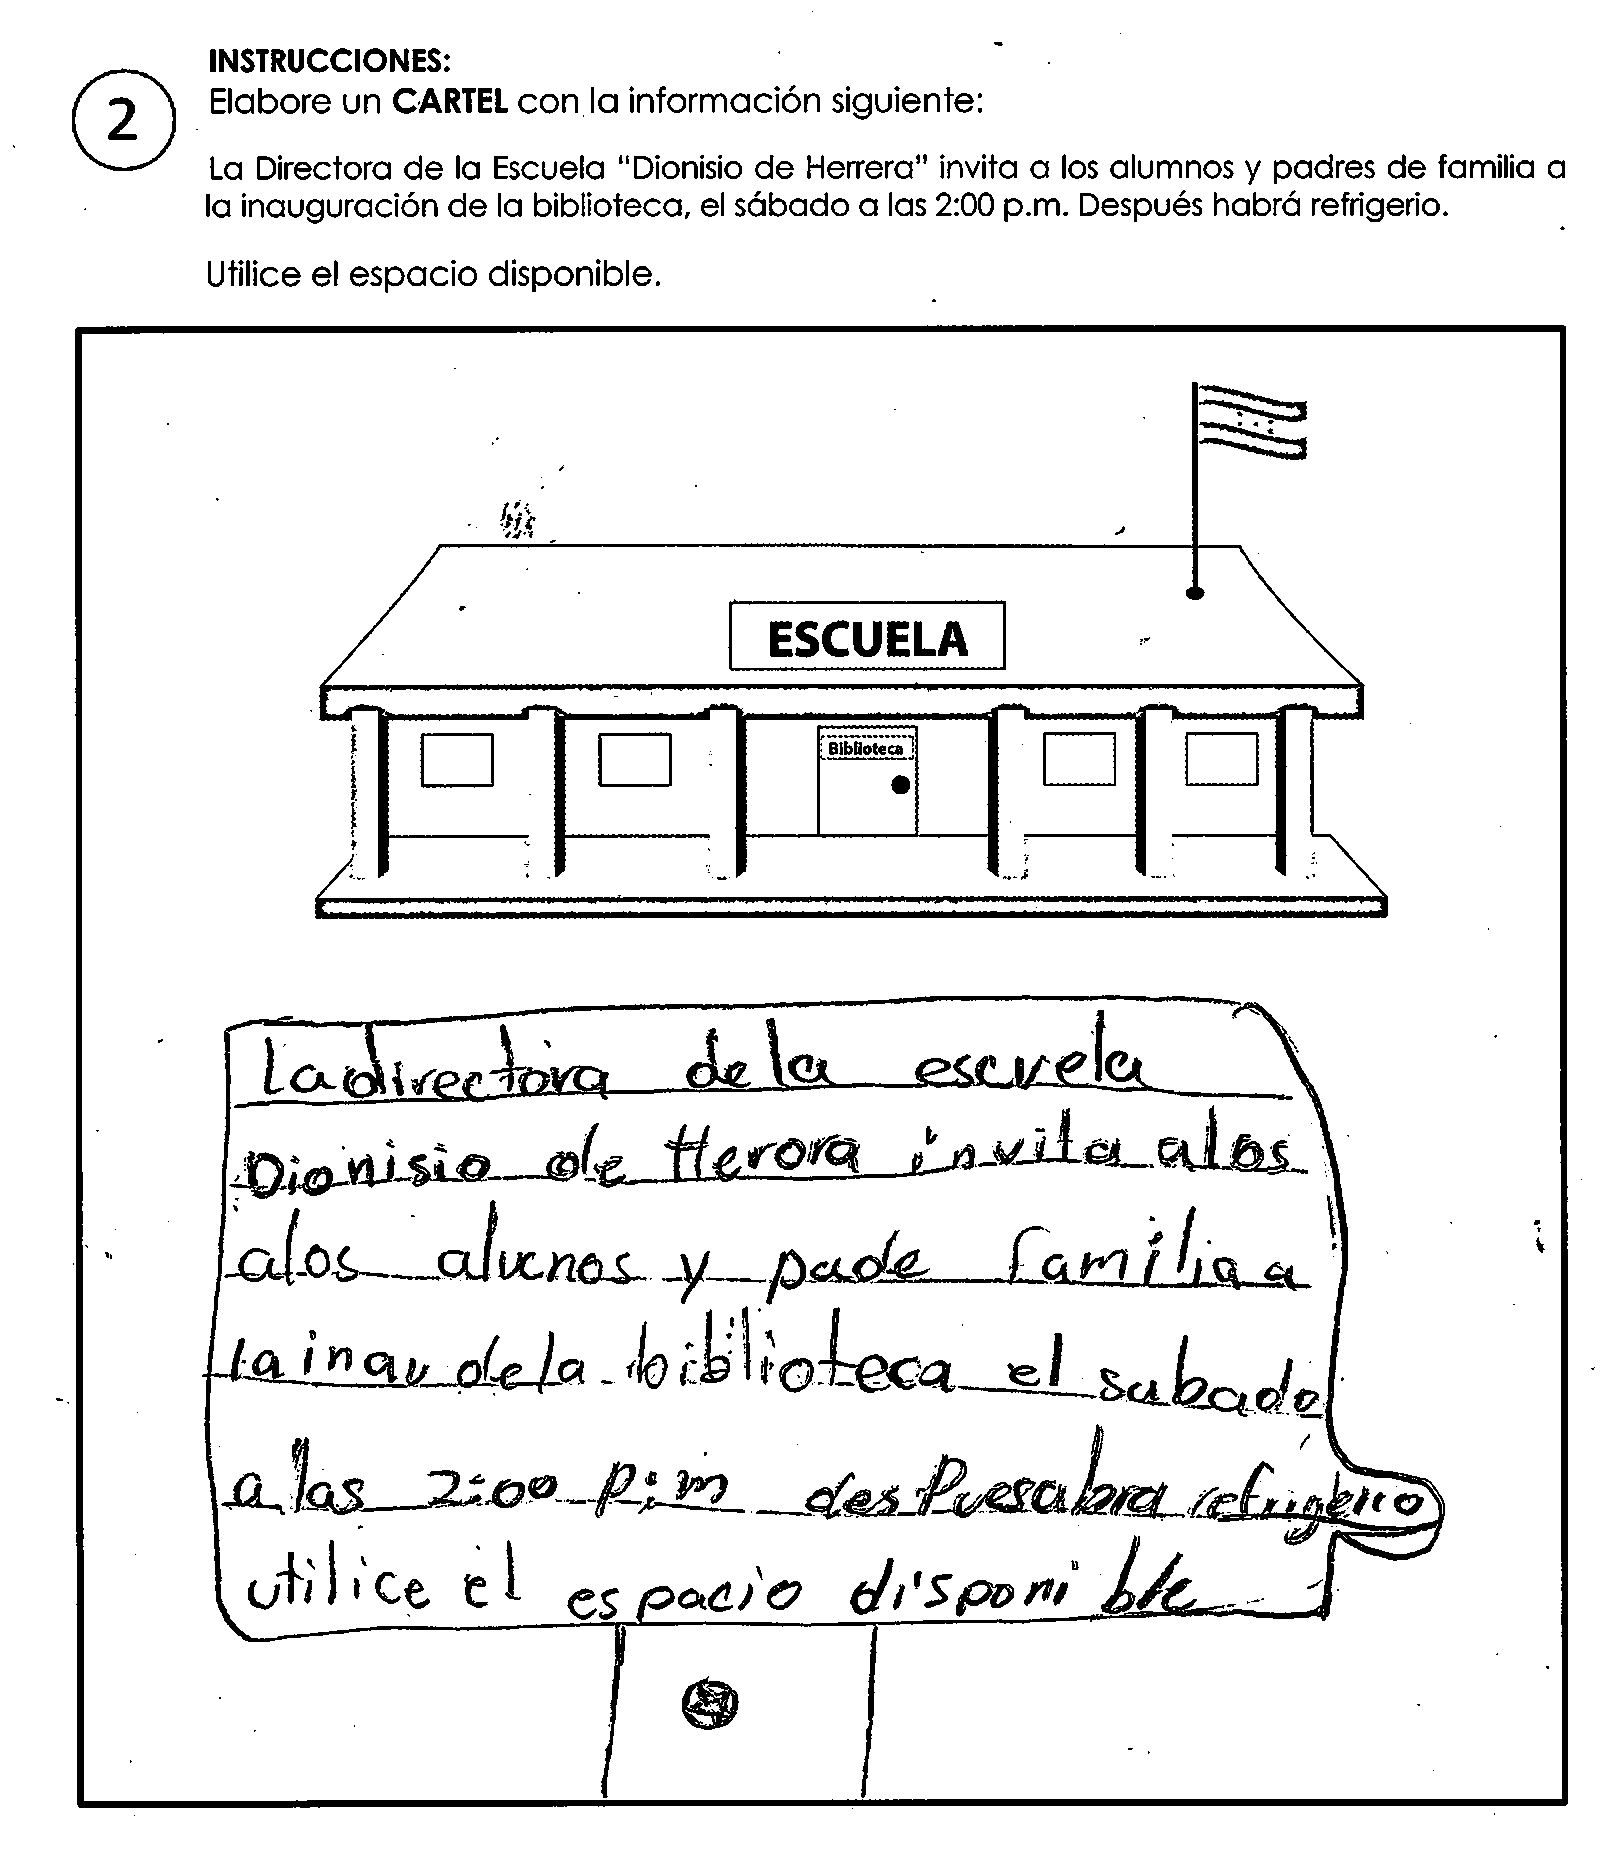 INSTRUCCIONES:
2
Elabore un CARTEL con la información siguiente:
La Directora de la Escuela "Dionisio de Herrera" invita a los alumnos y padres de familia a
la inauguración de la biblioteca, el sábado a las 2:00 p.m. Después habrá refrigerio.
Utilice el espacio disponible.
ESCUELA
Biblioteca
La directora de la escuela
Dionisio de Herora invita a los
a los alucnos y pade familia a
la inau de la biblioteca el sabado
a las 2:00 p:m des Pues abra refrigerio
utilice el espacio disponible